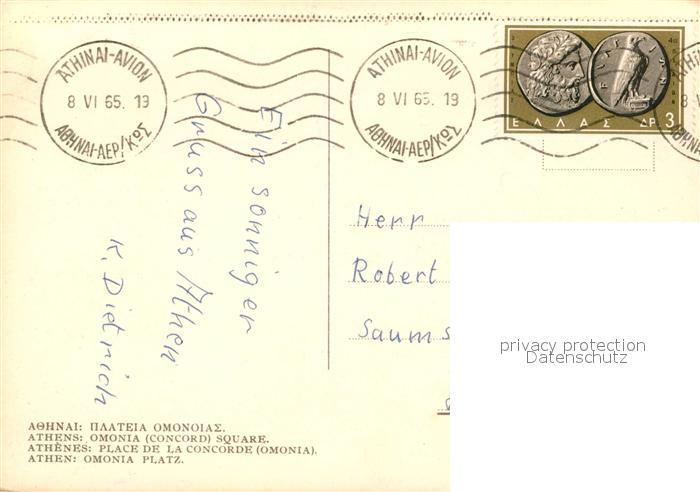 ATHINAI-AVION
8 VI 65. 19
ΑΘΗΝΑΙ-ΑΕΡ/ΚΩΣ
ATHINAI-AVION
8 VI 65. 19
ΑΘΗΝΑΙ-ΑΕΡ/ΚΩΣ
ΕΛΛΑΣ ΔΡ 3
Ein sonniger
Gruss aus Athen
K. Dietrich
Herr
Robert
privacy protection
Datenschutz
ΑΘΗΝΑΙ: ΠΛΑΤΕΙΑ ΟΜΟΝΟΙΑΣ.
ATHENS: OMONIA (CONCORD) SQUARE.
ATHÈNES: PLACE DE LA CONCORDE (OMONIA).
ATHEN: OMONIA PLATZ.